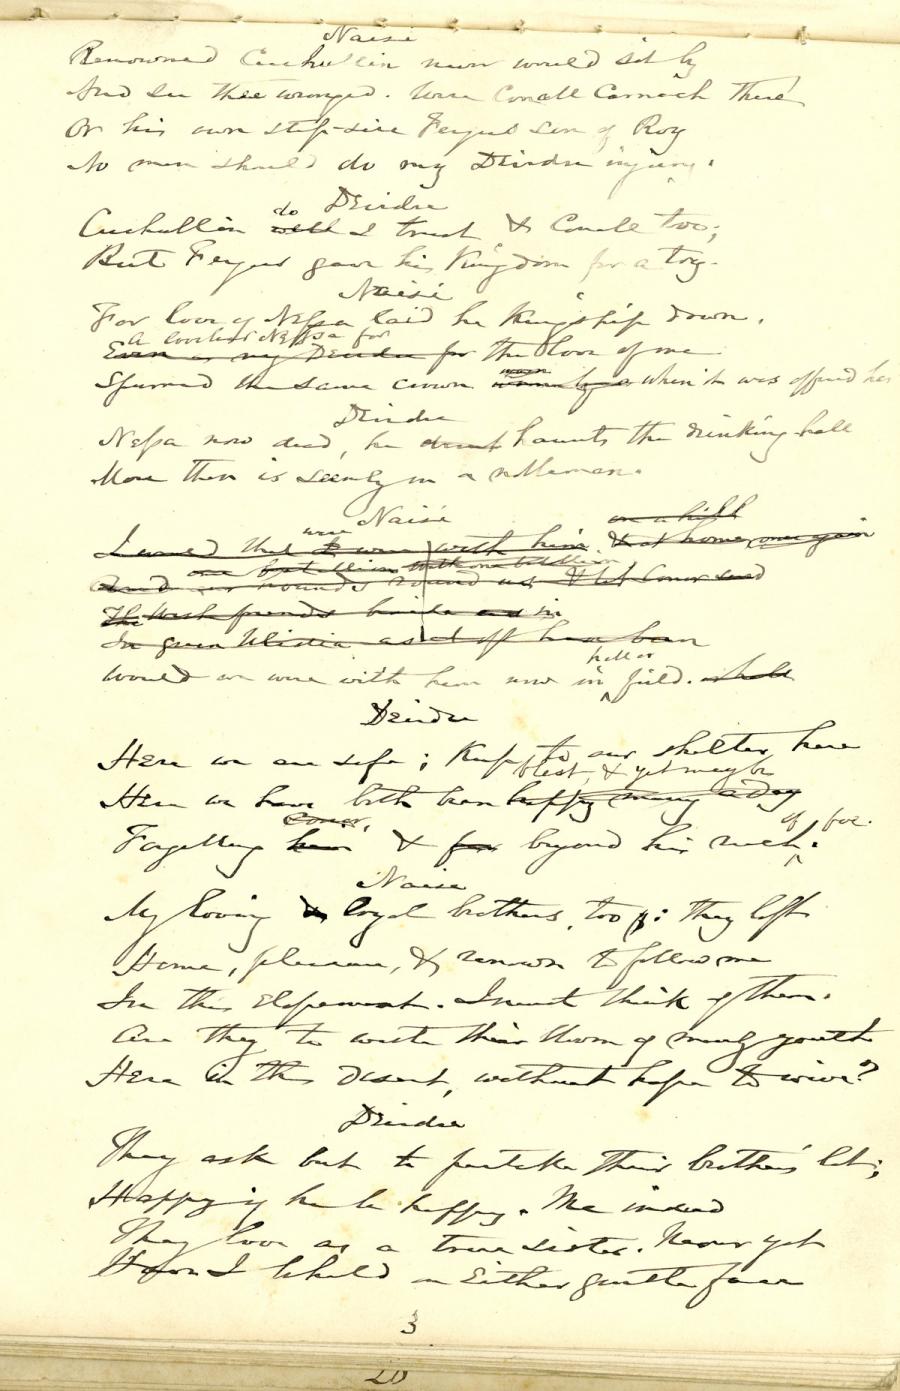 Naisi
Renowned Cuchullin never would sit by
And see thee wronged. Were Conall Carnach there
Or his own step-sire Fergus son of Roy
No man should do my Deirdre injury.
Deirdre
do
Cuchullin well I trust & Conall too;
But Fergus gave his Kingdom for a toy.
Naisi
For love of Nessa laid he Kingship down.
A another Nessa for
Even as my Deirdre for the love of me
Spurned the same crown when it was offered her
Deirdre
Nessa now dead, he haunts the drinking hall
More than is seemly in a nobleman.
Naisi
were on a hill
I would that I were with him. & at home once again
one battalion with one battalion
And our hounds round us, &
friends beside in
In green Ulidia as oft have been
hall or
Would we were with him now in field.
Deirdre
Here we are safe; Keep to our shelter here
blest, & yet may be
Here we have both been happy many a day
Conor, of foe.
Forgetting him & far beyond his reach.
Naisi
My loving & loyal brothers, too; they left
Home, pleasure, & renown to follow me
In this Elopement. I must think of them.
Are they to waste their bloom of manly youth
Here in this desert, without hope to wive?
Deirdre
They ask but to partake their brother's lot;
Happy if he be happy. Me indeed
They love as a true sister. Never yet
Have I beheld on Either gentle face
3
20